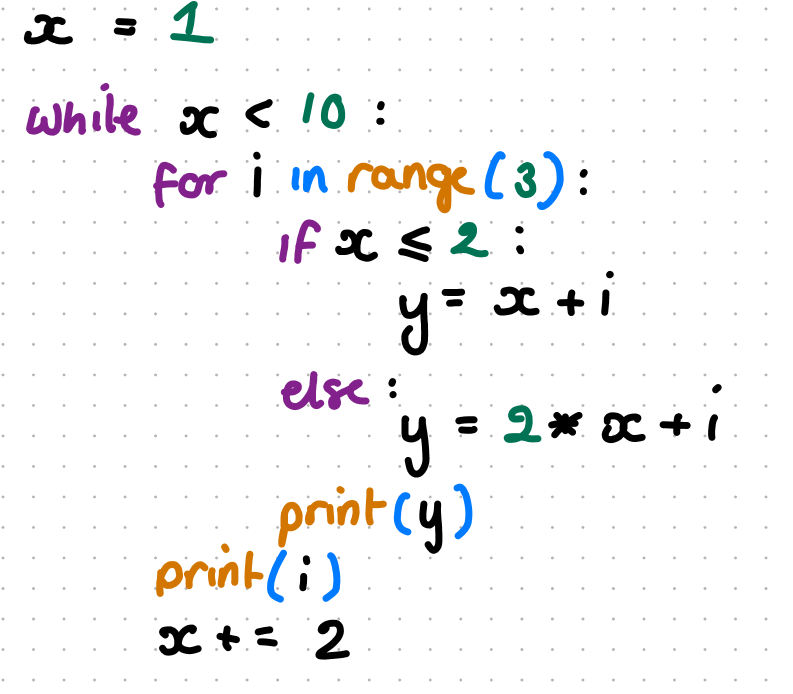 x = 1
while x < 10 :
for i in range(3):
if x ≤ 2 :
y = x + i
else :
y = 2 * x + i
print(y)
print(i)
x += 2